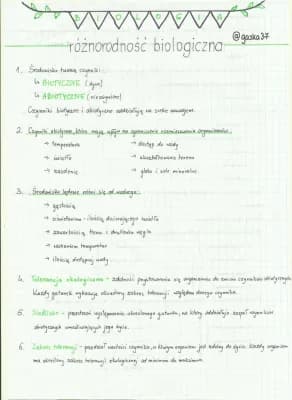 BIOLOGIA
@gaska37
różnorodność biologiczna
1. Środowisko tworzą czynniki:
↳ BIOTYCZNE (żywe)
↳ ABIOTYCZNE (nieożywione)
Czynniki biotyczne i abiotyczne oddziałują na siebie nawzajem.
2. Czynniki abiotyczne, które mają wpływ na rozmieszczenie organizmów:
→ temperatura → dostęp do wody
→ światło → ukształtowanie terenu
→ zasolenie → gleba i sole mineralne
3. Środowisko lądowe różni się od wodnego:
→ gęstością
→ oświetleniem - ilością docierającego światła
→ zawartością tlenu i dwutlenku węgla
→ wahaniem temperatur
→ ilością dostępnej wody
4. Tolerancja ekologiczna - zdolność przystosowania się organizmów do zmian czynników abiotycznych.
Każdy gatunek wykazuje określony zakres tolerancji względem danego czynnika.
5. Siedlisko - przestrzeń występowania określonego gatunku, na który oddziałuje zespół czynników
abiotycznych umożliwiających jego życie.
6. Zakres tolerancji - przedział wartości czynnika, w którym organizm jest zdolny do życia. Każdy organizm
ma określony zakres tolerancji ekologicznej od minimum do maksimum.